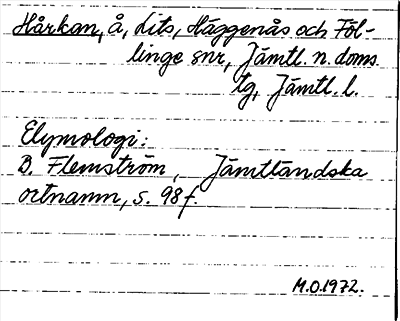 Hårkan, å, Lits, Häggenås och Föl-
linge snr, Jämtl. n. doms.
tg, Jämtl. l.
Etymologi:
B. Flemström, Jämtländska
ortnamn, s. 98 f.
M.O.1972.